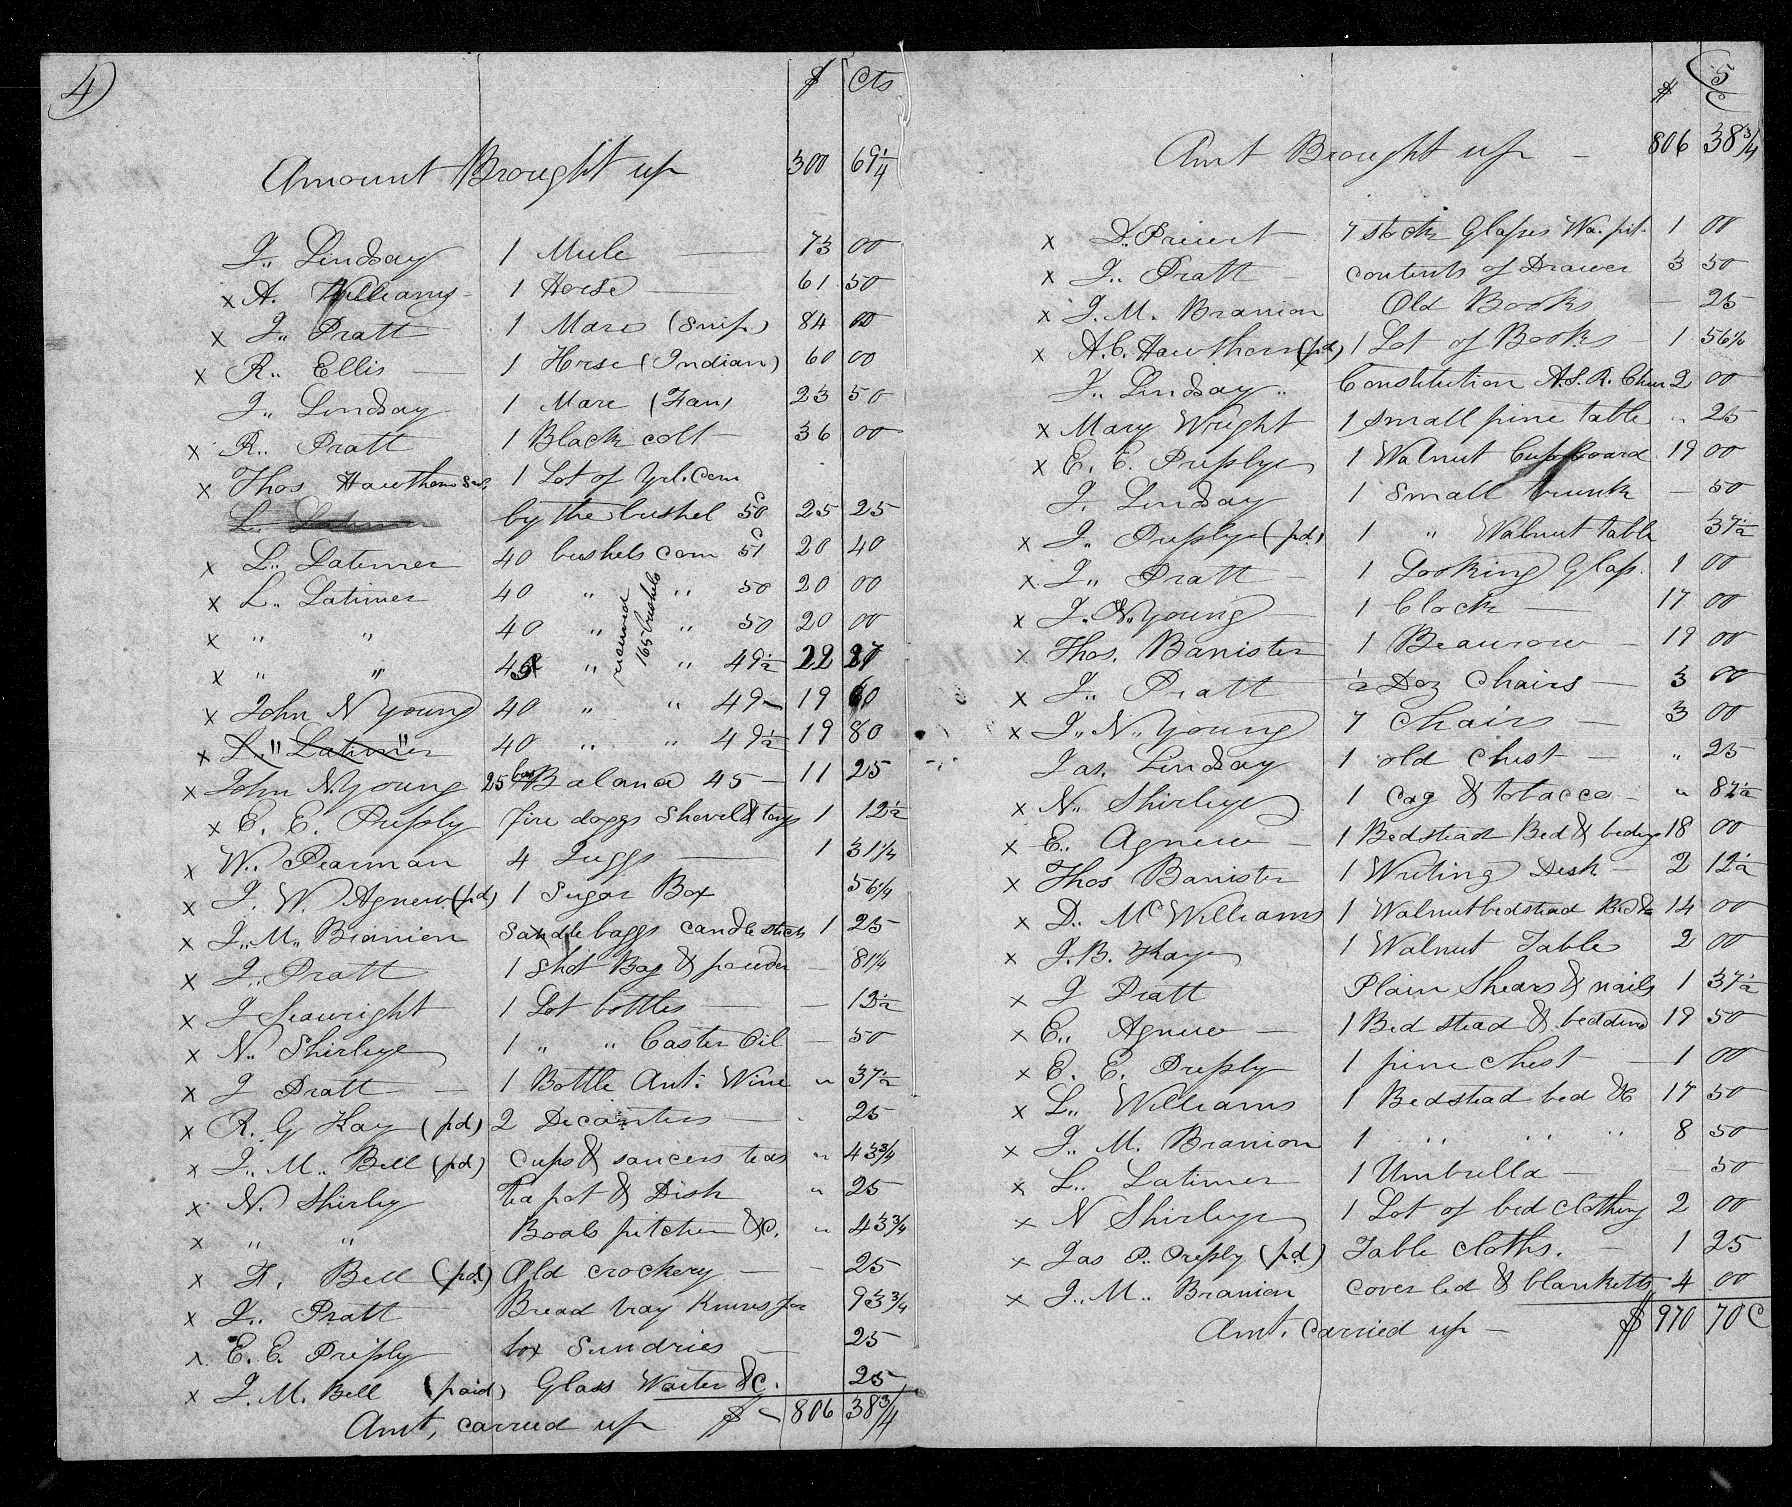 4)
$ Cts
Amount Brought up 300 69 1/4
J.. Lindsay 1 Mule 73 00
x A. Williams 1 Horse 61 50
x J.. Pratt 1 Mare (Snip) 84 00
x R.. Ellis 1 Horse (Indian) 60 00
J.. Lindsay 1 Mare (Fan) 23 50
x R.. Pratt 1 Black colt 36 00
x Thos Hawthorn 1 Lot of Yel. Corn
L. Latimer by the bushel 50 25 25
x L.. Latimer 40 bushels corn 51 20 40
x L.. Latimer 40 " " 50 20 00
x " " 40 " " 50 20 00
x " " 45 " " 49 1/2 22 27
received 165 bushels
x John N Young 40 " " 49 19 60
x L.. Latimer 40 " " 49 1/2 19 80
x John N Young 25 bus Balance 45 11 25
x E. E. Pressly fire doggs Shovel & tongs 1 12 1/2
x W.. Pearman 4 Juggs 1 31 1/4
x J. W. Agnew (pd) 1 Sugar Box 56 1/4
x J.. M.. Branion Saddle baggs candle sticks 1 25
x J.. Pratt 1 Shot Bag & powder 81 1/4
x J Seawright 1 Lot bottles 12 1/2
x N.. Shirleye 1 " " Caster Oil 50
x J Pratt 1 Bottle Ant. Wine " 37 1/2
x R. G Kay (pd) 2 Decanters 25
x J.. M.. Bell (pd) Cups & saucers teas " 43 3/4
x N. Shirley Tea pot & Dish " 25
x " " Boals pitcher &C. " 43 3/4
x F. Bell (pd) Old crockery 25
x J.. Pratt Bread tray Knives 93 3/4
x E. E. Pressly box Sundries 25
x J. M. Bell (paid) Glass Waiter &C. 25
Amt, carried up $ 806 38 3/4
5
$ C
Amt Brought up 806 38 3/4
x D.. Priust 7 Glasses Wa. pit. 1 00
x J.. Pratt contents of Drawer 3 50
x J. M. Branion Old Books 25
x A. C. Hawthorn (pd) 1 Lot of Books 1 56 1/4
J.. Lindsay .. Constitution A. S. R. Chur 2 00
x Mary Wright 1 small pine table " 25
x E. E. Presslye 1 Walnut Cupboard 19 00
J. Lindsay 1 small trunk 50
x J.. Presslye (pd.) 1 " Walnut table 37 1/2
x J.. Pratt 1 Looking Glass. 1 00
x J.. N.. Young 1 Clock 17 00
x Thos. Banister 1 Beaurow 19 00
x J.. Pratt 1/2 Doz Chairs 3 00
x J.. N.. Young 7 Chairs 3 00
Jas. Lindsay 1 old chest " 25
x N.. Shirleye 1 Cag & tobacco " 87 1/2
x E.. Agnew 1 Bedstead Bed & beding 18 00
x Thos Banister 1 Writing Desk 2 12 1/2
x D.. McWilliams 1 Walnut bedstead Bed & 14 00
x J. B. Kaye 1 Walnut Table 2 00
x J Pratt Plain Shears & nails 1 37 1/2
x E.. Agnew 1 Bed stead & bedding 19 50
x E. E. Pressly 1 pine chest 1 00
x L.. Williams 1 Bedstead bed &C 17 50
x J.. M. Branion 1 " " " 8 50
x L.. Latimer 1 Umbrella 50
x N Shirleye 1 Lot of bed clothing 2 00
x Jas P. Pressly (pd) Table cloths. 1 25
x J.. M.. Branion Cover led & blanketts 4 00
Amt. carried up $ 970 70 C